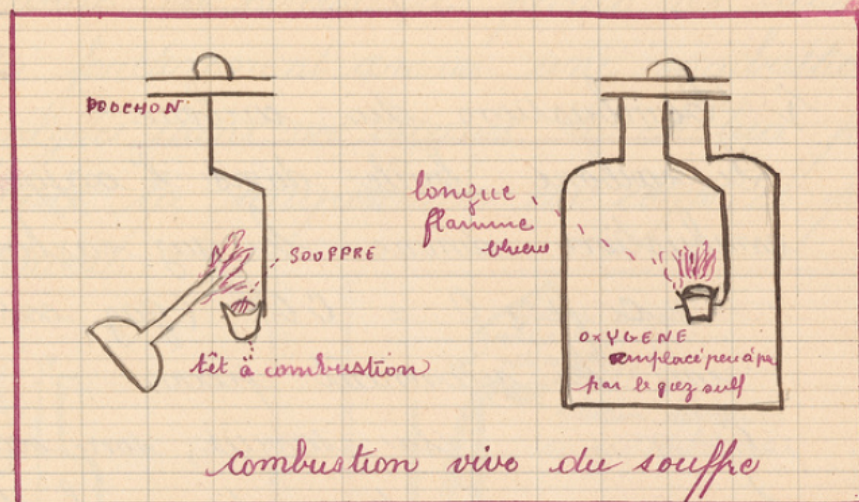 BOUCHON
SOUPFRE
têt à combustion
longue
flamme
bleue
OXYGENE
remplacé peu à peu
par le gaz sulf
combustion vive du souffre